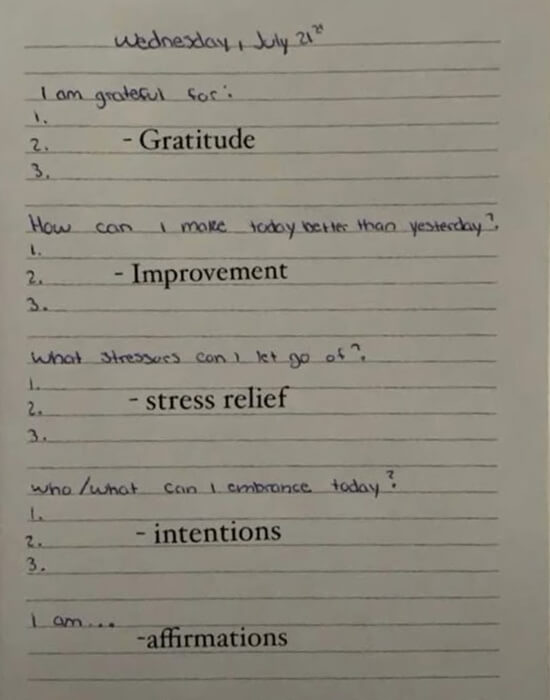 Wednesday, July 21st
I am grateful for:
1.
2. - Gratitude
3.
How can I make today better than yesterday?
1.
2. - Improvement
3.
What stressors can I let go of?
1.
2. - stress relief
3.
Who/what can I embrance today?
1.
2. - intentions
3.
I am...
-affirmations